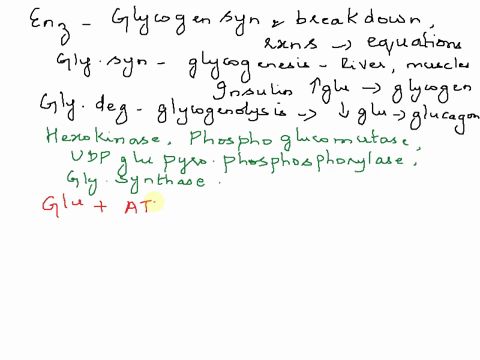 Enz - Glycogen syn & breakdown,
rxns → equations
Gly. syn - glycogenesis - liver, muscles
Insulin ↑glu → glycogen
Gly. deg - glycogenolysis → ↓ glu → glucagon
Hexokinase, Phosphoglucomutase,
UDP glu pyro. phosphosphorylase,
Gly. synthase.
Glu + AT